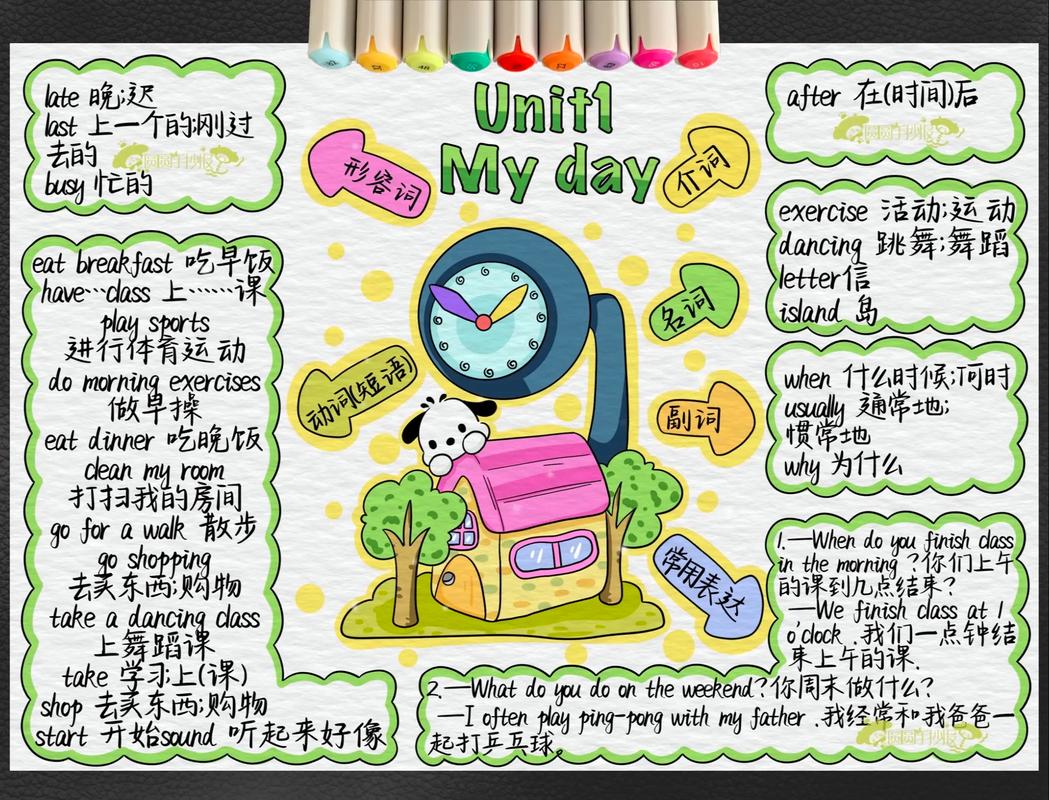 Unit1
My day
形容词
late 晚;迟
last 上一个的;刚过
去的
busy 忙的
动词(短语)
eat breakfast 吃早饭
have…class 上……课
play sports
进行体育运动
do morning exercises
做早操
eat dinner 吃晚饭
clean my room
打扫我的房间
go for a walk 散步
go shopping
去买东西;购物
take a dancing class
上舞蹈课
take 学习;上(课)
shop 去买东西;购物
start 开始sound 听起来好像
介词
after 在(时间)后
名词
exercise 活动;运动
dancing 跳舞;舞蹈
letter信
island 岛
副词
when 什么时候;何时
usually 通常地;
惯常地
why 为什么
常用表达
1.—When do you finish class
in the morning ?你们上午
的课到几点结束?
—We finish class at 1
o'clock .我们一点钟结
束上午的课.
2.—What do you do on the weekend?你周末做什么?
—I often play ping-pong with my father .我经常和我爸爸一
起打乒乓球。